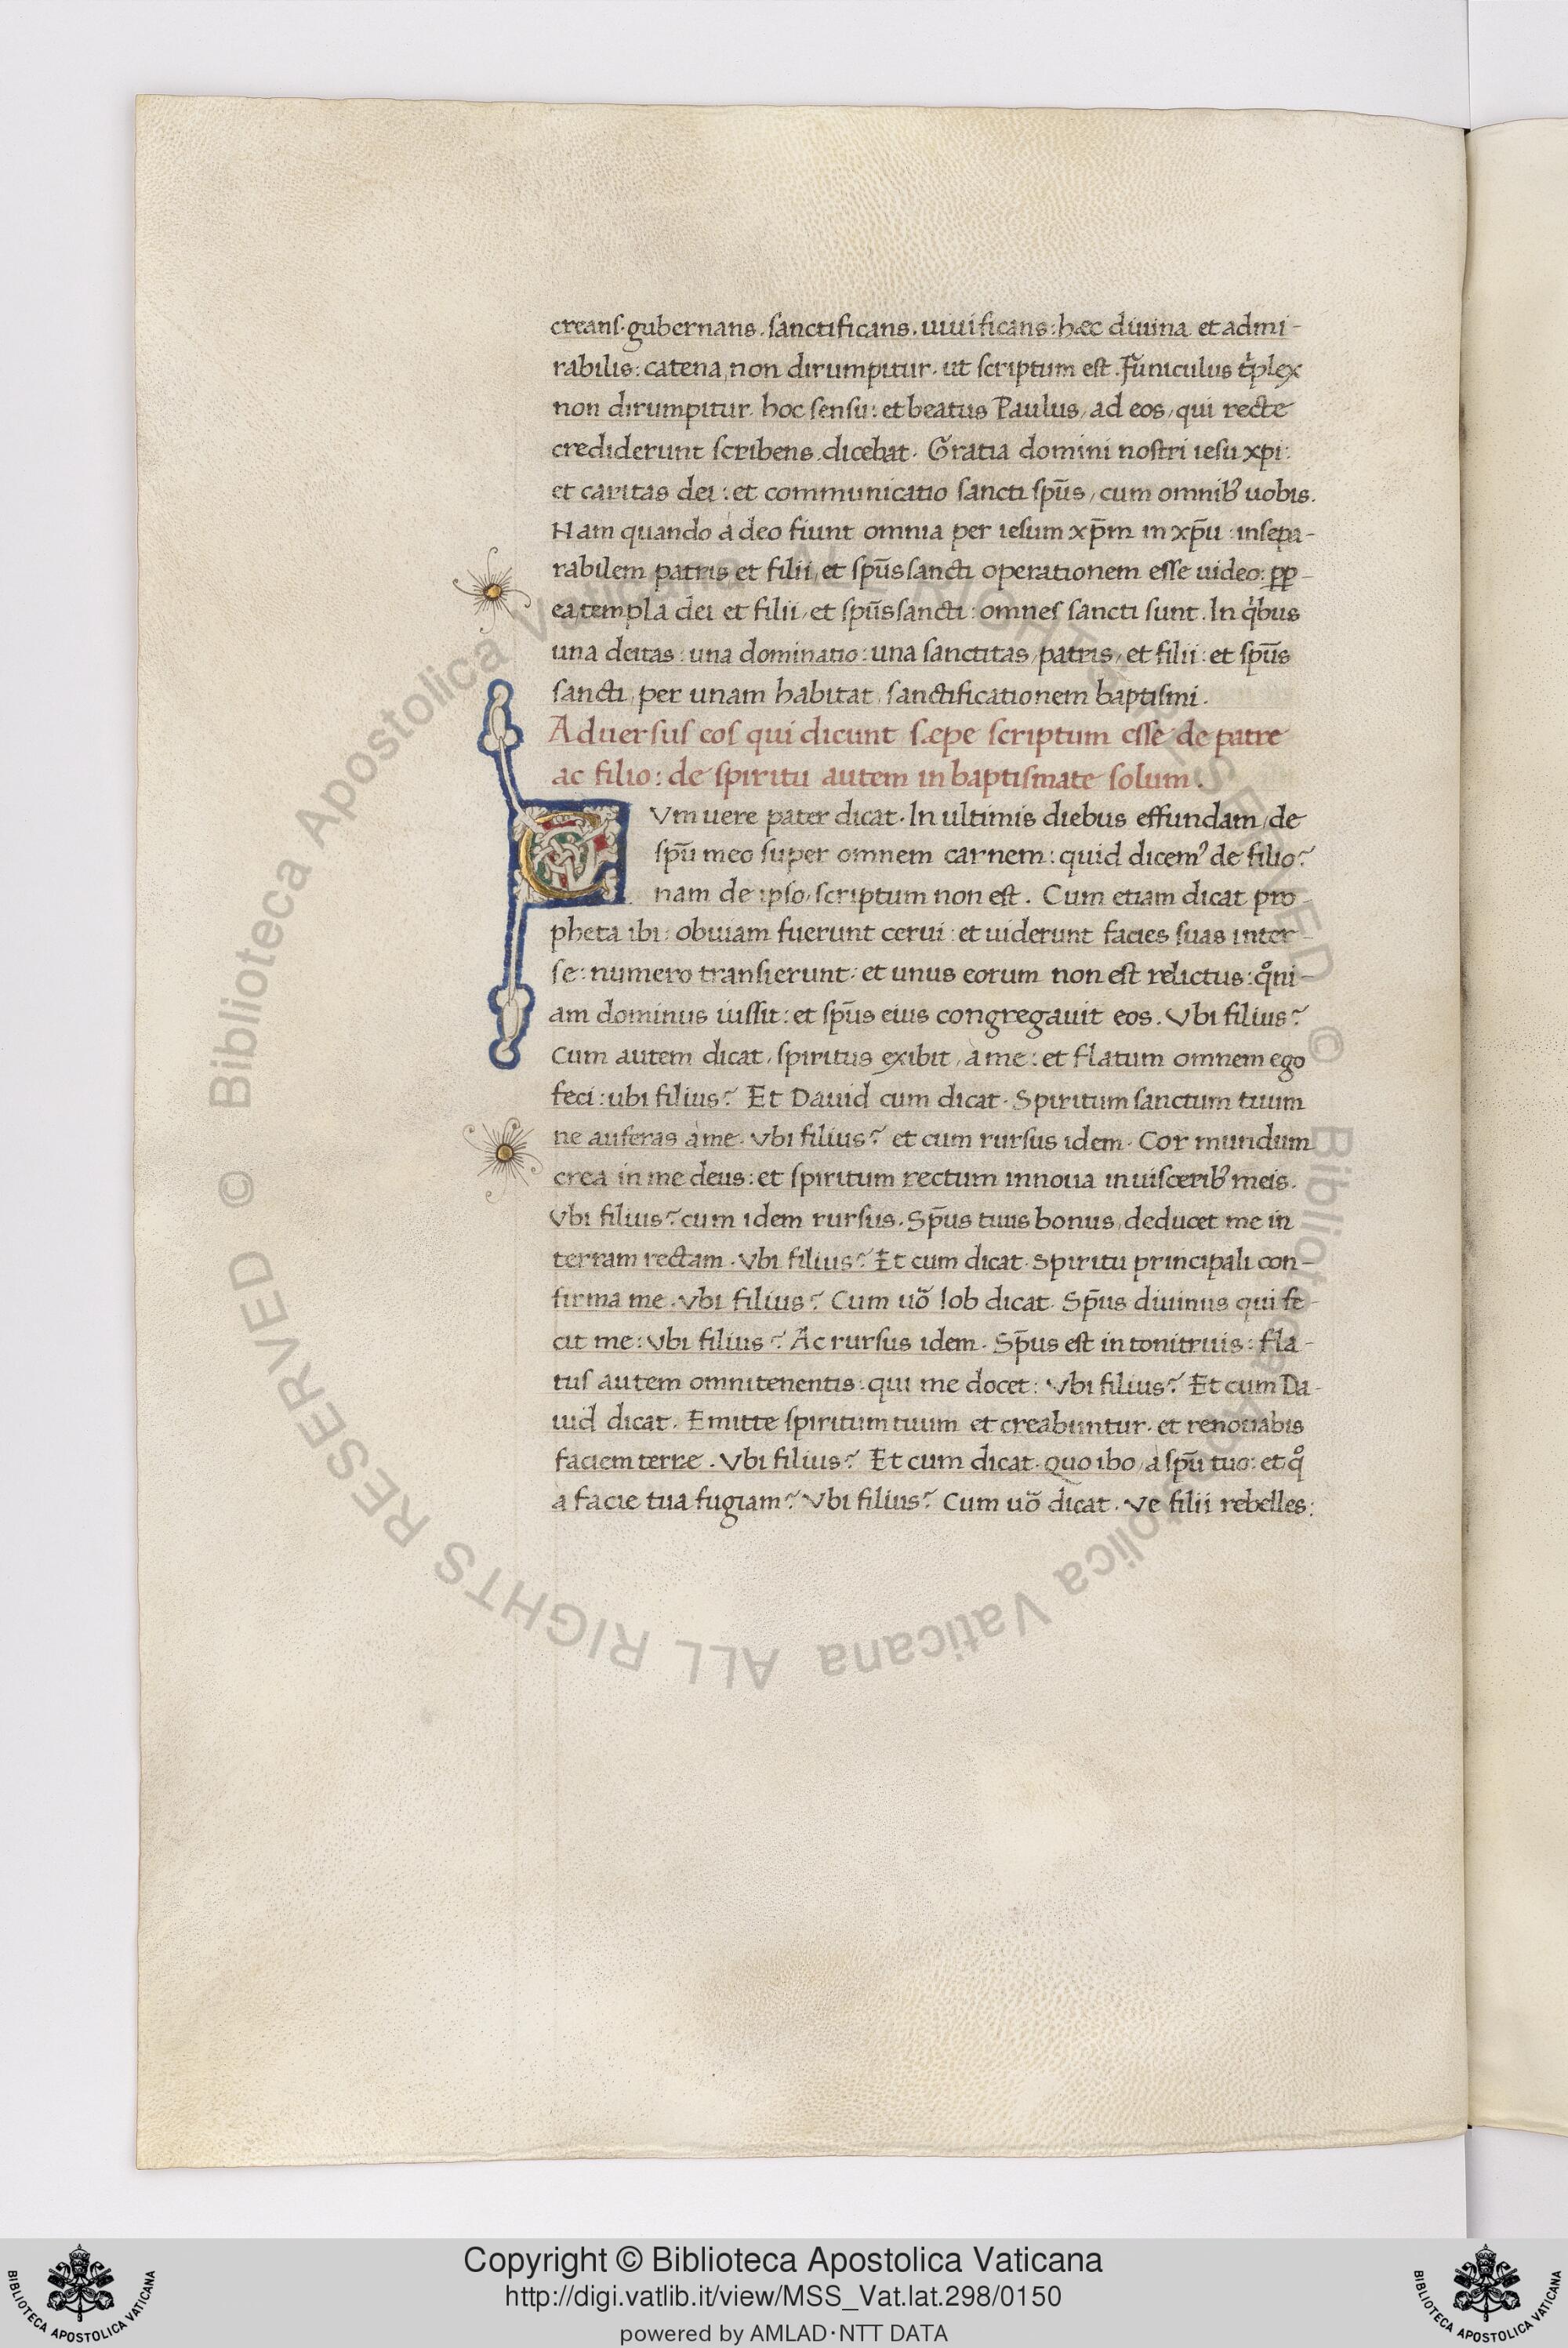 creans. gubernans. sanctificans. uiuificans: hæc diuina et admi-
rabilis: catena, non dirumpitur. ut scriptum est. Funiculus t̾plex
non dirumpitur. hoc sensu: et beatus Paulus, ad eos, qui recte
crediderunt scribens. dicebat. Gratia domini nostri iesu xpi:
et caritas dei: et communicatio sancti spūs, cum omnib; uobis.
Nam quando a deo fiunt omnia per iesum xp̄m in xp̄u: insepa-
rabilem patris et filii, et spūs sancti operationem esse uideo: pp-
ea templa dei et filii, et spūs sancti: omnes sancti sunt. In qͥbus
una deitas: una dominatio: una sanctitas, patris, et filii: et spūs
sancti, per unam habitat, sanctificationem baptismi.
Aduersus eos qui dicunt sæpe scriptum esse de patre
ac filio: de spiritu autem in baptismate solum.
CVm uere pater dicat. In ultimis diebus effundam, de
spū meo super omnem carnem: quid dicemꝰ de filio?
nam de ipso, scriptum non est. Cum etiam dicat pro-
pheta ibi: obuiam fuerunt cerui: et uiderunt facies suas inter-
se: numero transierunt: et unus eorum non est relictus: qͦni-
am dominus iussit: et sp̄us eius congregauit eos. Vbi filius?
Cum autem dicat, spiritus exibit, a me: et flatum omnem ego
feci: ubi filius? Et Dauid cum dicat. Spiritum sanctum tuum
ne auferas a me. Vbi filius? et cum rursus idem. Cor mundum
crea in me deus: et spiritum rectum innoua in uiscerib; meis.
Vbi filius? cum idem rursus. Sp̄us tuus bonus, deducet me in
terram rectam. Vbi filius? Et cum dicat. Spiritu principali con-
firma me. Vbi filius? Cum uō Iob dicat. Sp̄us diuinus qui fe-
cit me: Vbi filius? Ac rursus idem. Sp̄us est in tonitruis: fla-
tus autem omnitenentis. qui me docet: Vbi filius? Et cum Da-
uid dicat. Emitte spiritum tuum et creabuntur. et renouabis
faciem terræ. Vbi filius? Et cum dicat. Quo ibo, a spū tuo: et qͦ
a facie tua fugiam? Vbi filius? Cum uō dicat. Ve filii rebelles:
© Biblioteca Apostolica Vaticana ALL RIGHTS RESERVED © Biblioteca Apostolica Vaticana ALL RIGHTS RESERVED
BIBLIOTECA APOSTOLICA VATICANA
Copyright © Biblioteca Apostolica Vaticana
http://digi.vatlib.it/view/MSS_Vat.lat.298/0150
powered by AMLAD·NTT DATA
BIBLIOTECA APOSTOLICA VATICANA